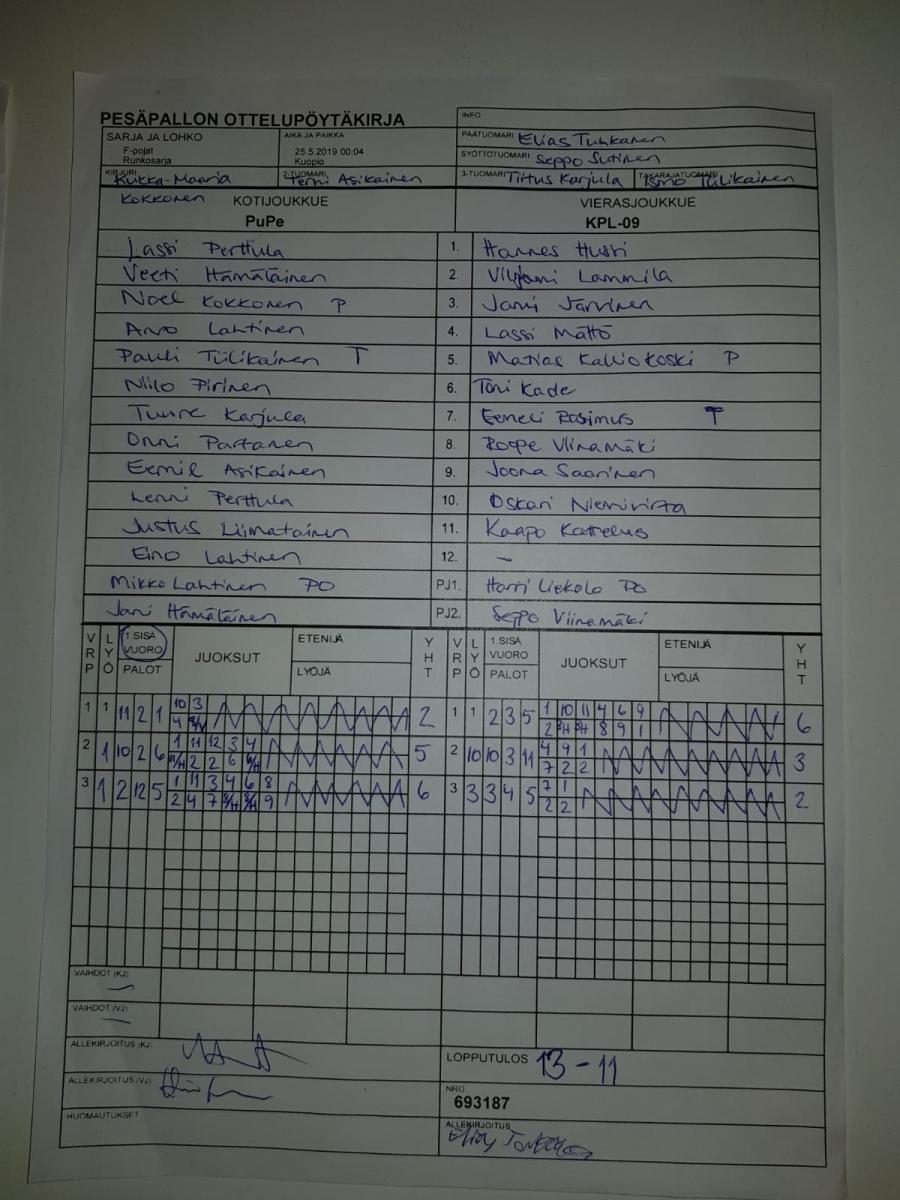 PESÄPALLON OTTELUPÖYTÄKIRJA
INFO
SARJA JA LOHKO
F-pojat
Runkosarja
AIKA JA PAIKKA
25.5.2019 00:04
Kuopio
PÄÄTUOMARI Elias Tuhkanen
SYÖTTÖTUOMARI Seppo Sutinen
KIRJURI Kukka-Maaria Kokkonen
2-TUOMARI Asikainen
3-TUOMARI Tiitus Karjula
TAKARAJATUOMARI Tülikainen
KOTIJOUKKUE
PuPe
VIERASJOUKKUE
KPL-09
Lassi Perttula 1. Hannes Husri
Veeti Hämäläinen 2. Viljami Lammila
Noel Kokkonen P 3. Jami Järvinen
Arvo Lahtinen 4. Lassi Mättö
Pauli Tülikainen T 5. Matias Kalliokoski P
Niilo Pirinen 6. Toni Kade
Tuure Karjula 7. Eemeli Rasimus T
Onni Partanen 8. Roope Viinamäki
Eemil Asikainen 9. Joona Saarinen
Lenni Perttula 10. Oskari Niemivirta
Justus Liimatainen 11. Kaapo Kattelus
Eino Lahtinen 12. -
Mikko Lahtinen PO PJ1. Harri Liekola PO
Jani Hämäläinen PJ2. Seppo Viinamäki
VRP LYÖ 1 SISÄ VUORO PALOT JUOKSUT ETENIJÄ LYÖJÄ YHT VRP LYÖ 1 SISÄ VUORO PALOT JUOKSUT ETENIJÄ LYÖJÄ YHT
1 1 11 2 1 10 3 2 1 1 2 3 5 1 10 11 4 6 9 6
2 1 10 2 6 1 11 12 3 4 5 2 10 10 3 11 4 9 1 3
7 2 2
3 1 2 12 5 1 11 3 4 6 8 6 3 3 3 4 5 7 1 2
2 4 7 8/H 8/H 9 2 2
VAIHDOT (KJ)
VAIHDOT (VJ)
ALLEKIRJOITUS (KJ)
LOPPUTULOS 13-11
ALLEKIRJOITUS (VJ)
NRO
693187
HUOMAUTUKSET
ALLEKIRJOITUS